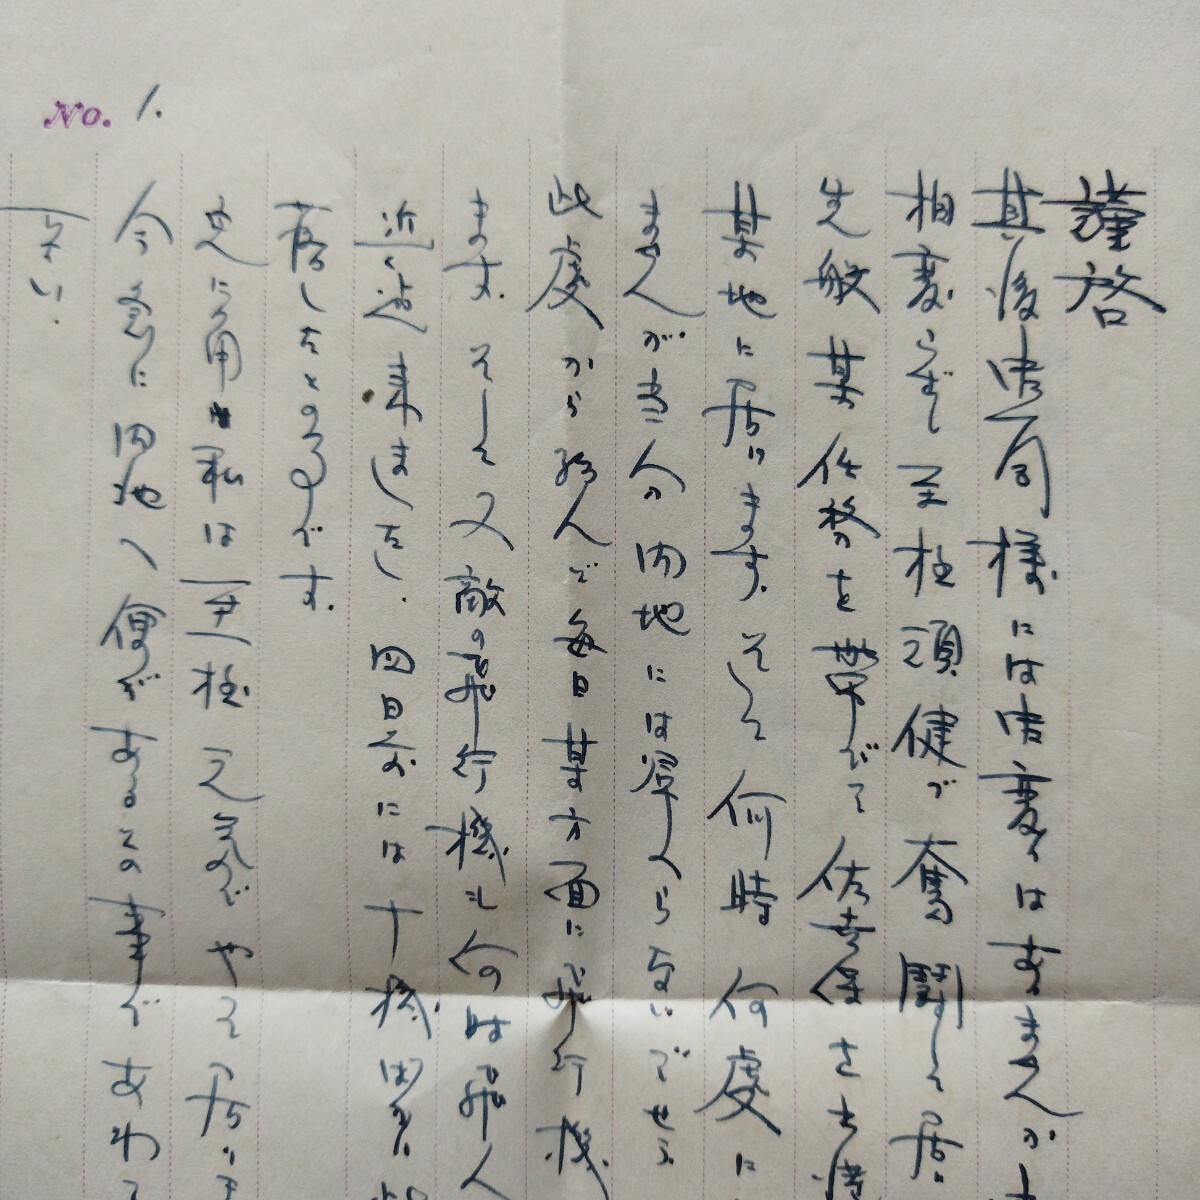 No. 1.
謹啓
其後皆々様には御変りはありませんか
相変らず至極頑健で奮闘して居
先般某任務を帯びて佐世保
某地に居ります。そして何時何處に
ませんが当分の内地には帰らないでせう
此處から飛んで毎日某方面に飛行機
ます。そして又敵の飛行機も
近迄来ました。四日前には十機
落したとの事です。
私は至極元気でやって居りま
今急に内地へ便があるとの事であわて
下さい。